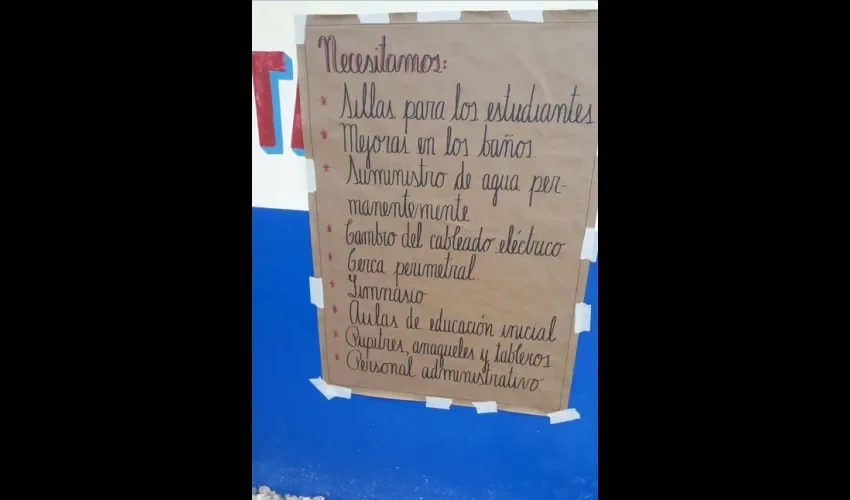 TA
Necesitamos:
* Sillas para los estudiantes
* Mejoras en los baños.
* Suministro de agua per-
manentemente
* Cambio del cableado eléctrico.
* Cerca perimetral.
* Gimnasio
* Aulas de educación inicial
* Pupitres, anaqueles y tableros
* Personal administrativo.